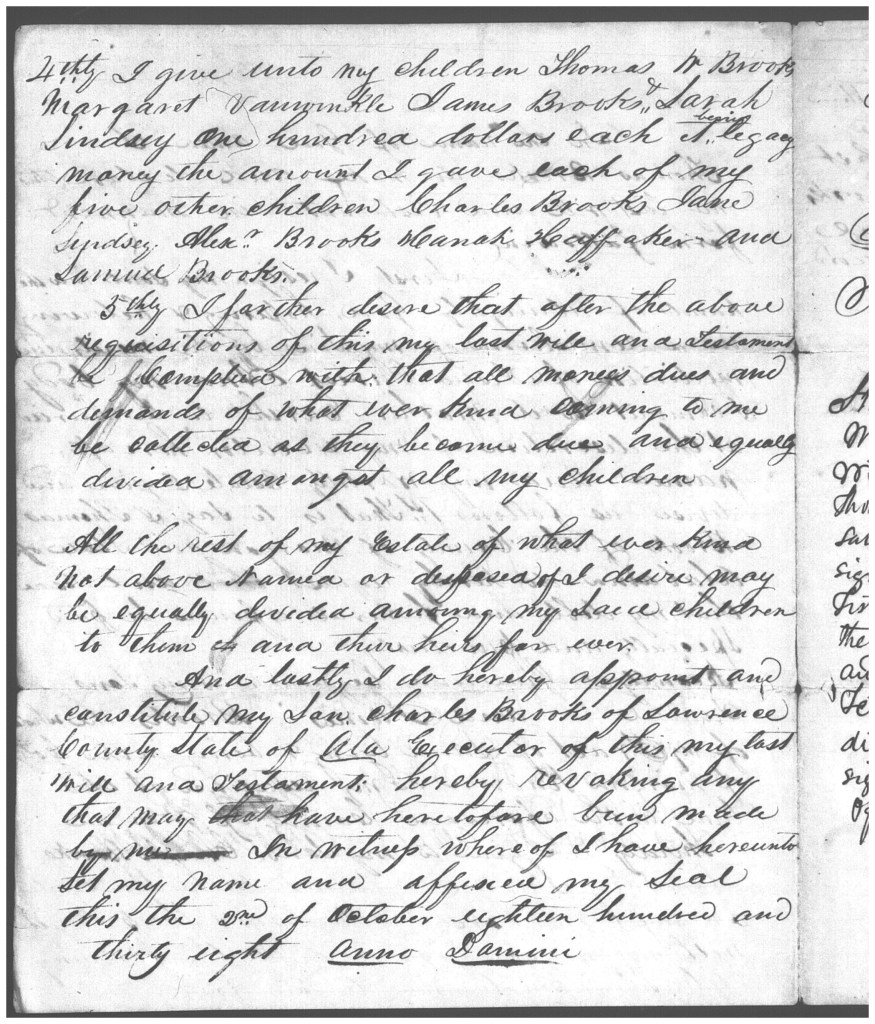 4thly I give unto my children Thomas W Brooks
Margaret Vanwinkle James Brooks, & Sarah
Lindsey One hundred dollars each it being legacy
money the amount I gave each of my
five other children Charles Brooks Jane
Lindsey. Alexr Brooks Hanah Huffaker and
Samuel Brooks.
5thly I farther desire that after the above
requisitions of this my last will and Testament
be Complied with. that all moneys dues and
demands of what ever kind coming to me
be collected as they become due and equally
divided amongst all my children
All the rest of my Estate of what ever kind
Not above Named or desposed of I desire may
be equally divided amoung my Said children
to them and their heirs for ever.
And lastly I do hereby appoint and
constitute my Son Charles Brooks of Lawrence
County State of Ala Executor of this my last
Will and Testament; hereby revoking any
that may that have heretofore been made
by me In witness where of I have hereunto
Set my Name and affixed my Seal
this the 2nd of October eighteen hundred and
thirty eight Anno Domini
the